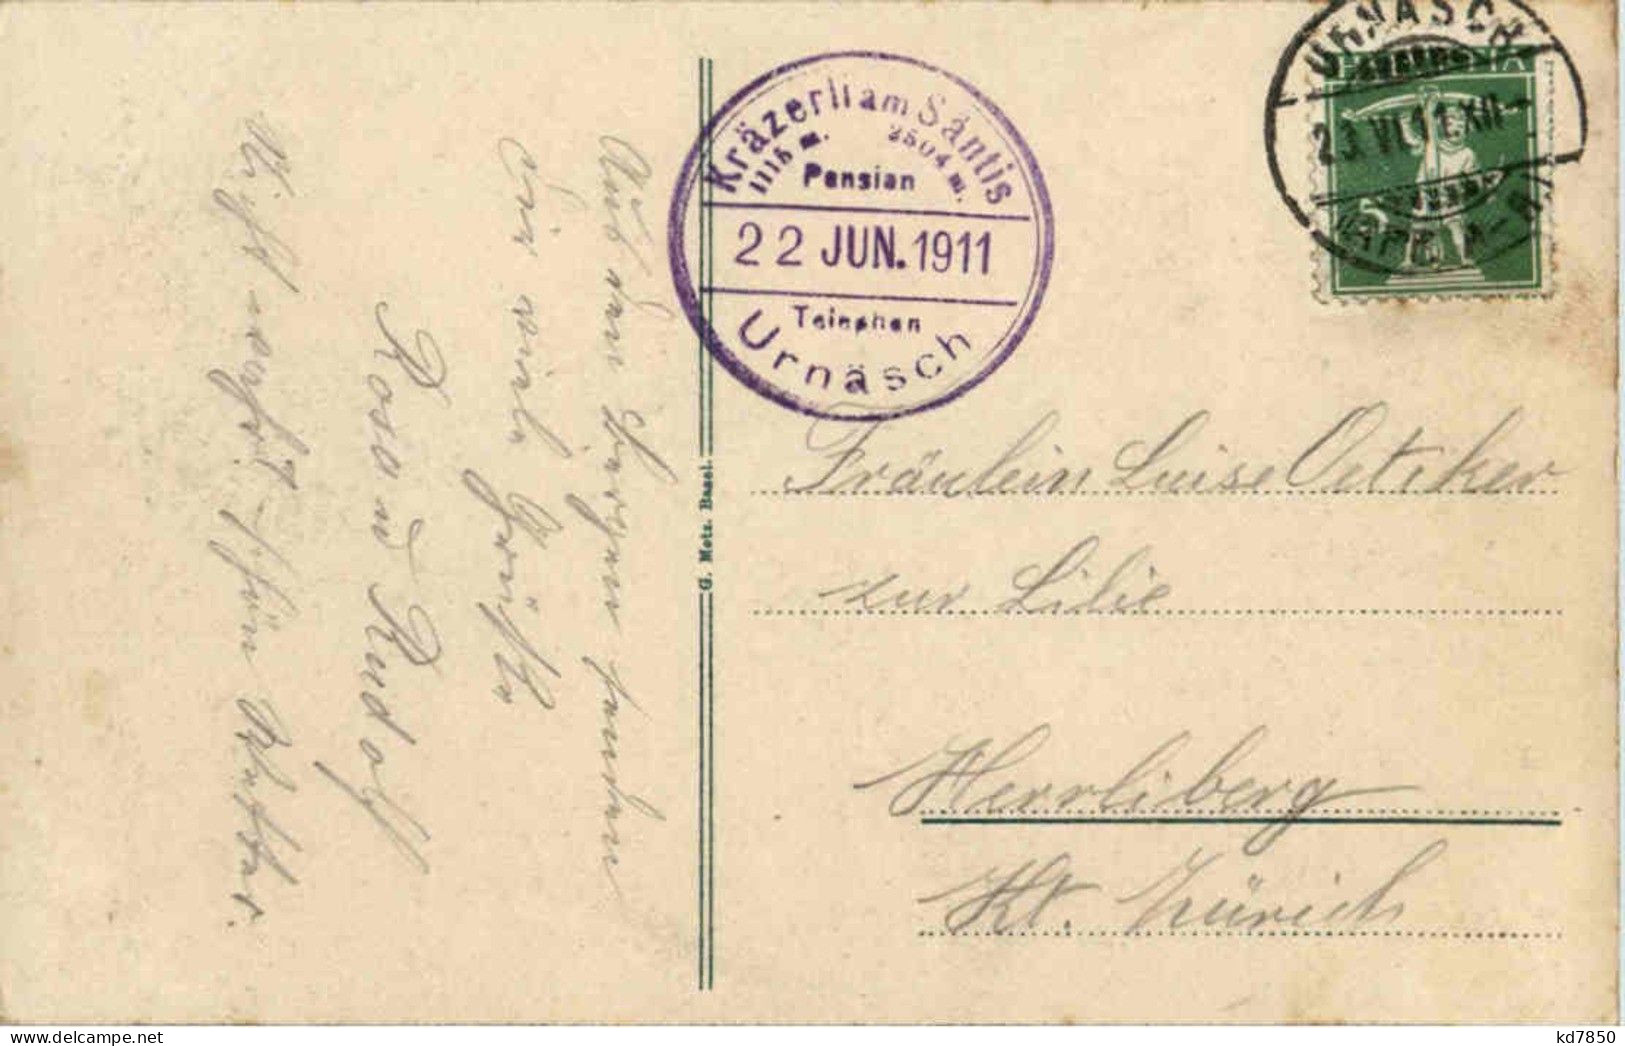 Kräzerli am Säntis
1116 m. 2504 m.
Pension
22 JUN. 1911
Telephon
Urnäsch
URNÄSCH
HELVETIA
23.VI.11.XII-
5
G. Metz. Basel.
Fräulein Luise Oetiker
zur Lilie
Herrliberg
Kt. Zürich
Aus dem
senden
wir viele Grüße
Rosa u Rudolf
Nicht wahr? schön Wetter.
kd7850